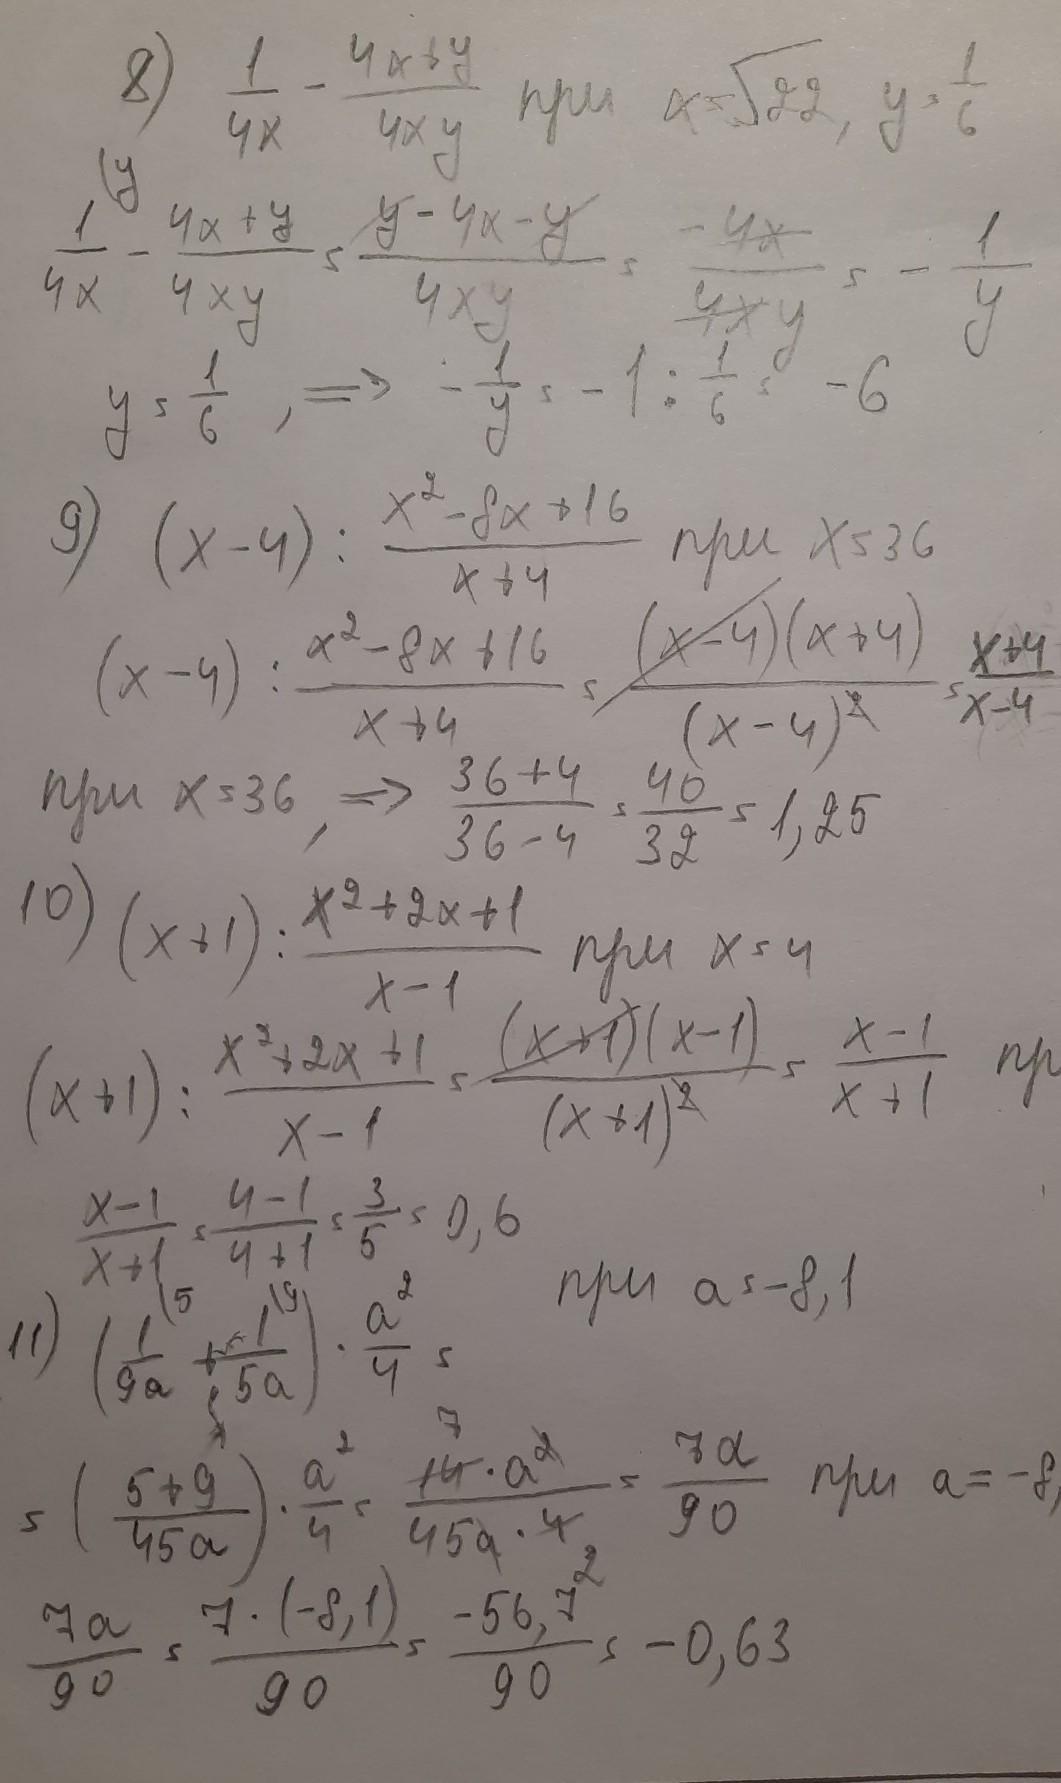 8) 1/4x - 4x+y/4xy при x=√22, y=1/6
1/4x (y - 4x+y/4xy = y-4x-y/4xy = -4x/4xy = -1/y
y=1/6, => -1/y = -1:1/6 = -6
9) (x-4): x²-8x+16/x+4 при x=36
(x-4): x²-8x+16/x+4 = (x-4)(x+4)/(x-4)² = x+4/x-4
при x=36, => 36+4/36-4 = 40/32 = 1,25
10) (x+1): x²+2x+1/x-1 при x=4
(x+1): x²+2x+1/x-1 = (x+1)(x-1)/(x+1)² = x-1/x+1 пр
x-1/x+1 = 4-1/4+1 = 3/5 = 0,6
при a=-8,1
11) (1/9a (5 + 1/5a (9) · a²/4 =
= (5+9/45a) · a²/4 = 7 14·a²/45a·4 2 = 7a/90 при a=-8,
7a/90 = 7·(-8,1)/90 = -56,7/90 = -0,63